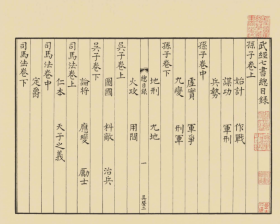 武經七書總目錄
孫子卷上
始計 作戰
謀攻 軍形
兵勢
孫子卷中
虛實 軍爭
九變 行軍
孫子卷下
地形 九地
火攻 用間
總目錄 一
吳子卷上
圖國 料敵 治兵
吳子卷下
論將 應變 勵士
司馬法卷上
仁本 天子之義
司馬法卷中
定爵
司馬法卷下